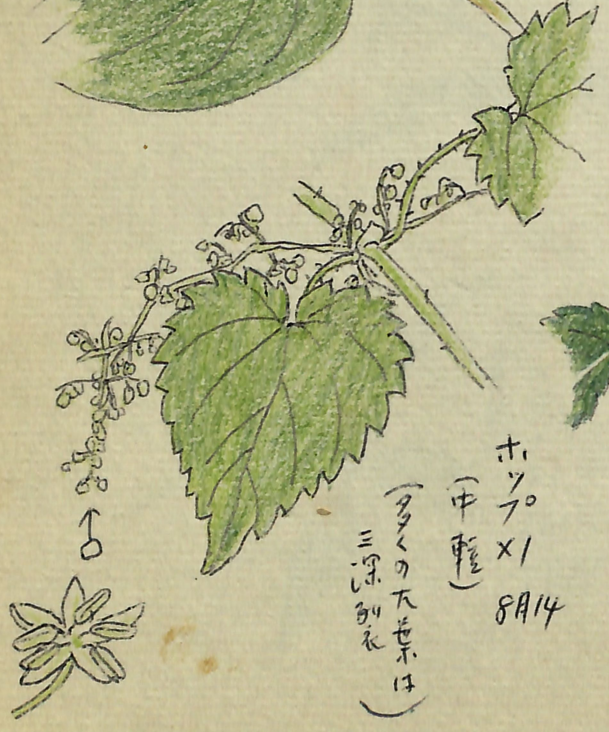 ホップ ×1 8月14
(中軽)
(多くの大葉は
三深裂)
♂